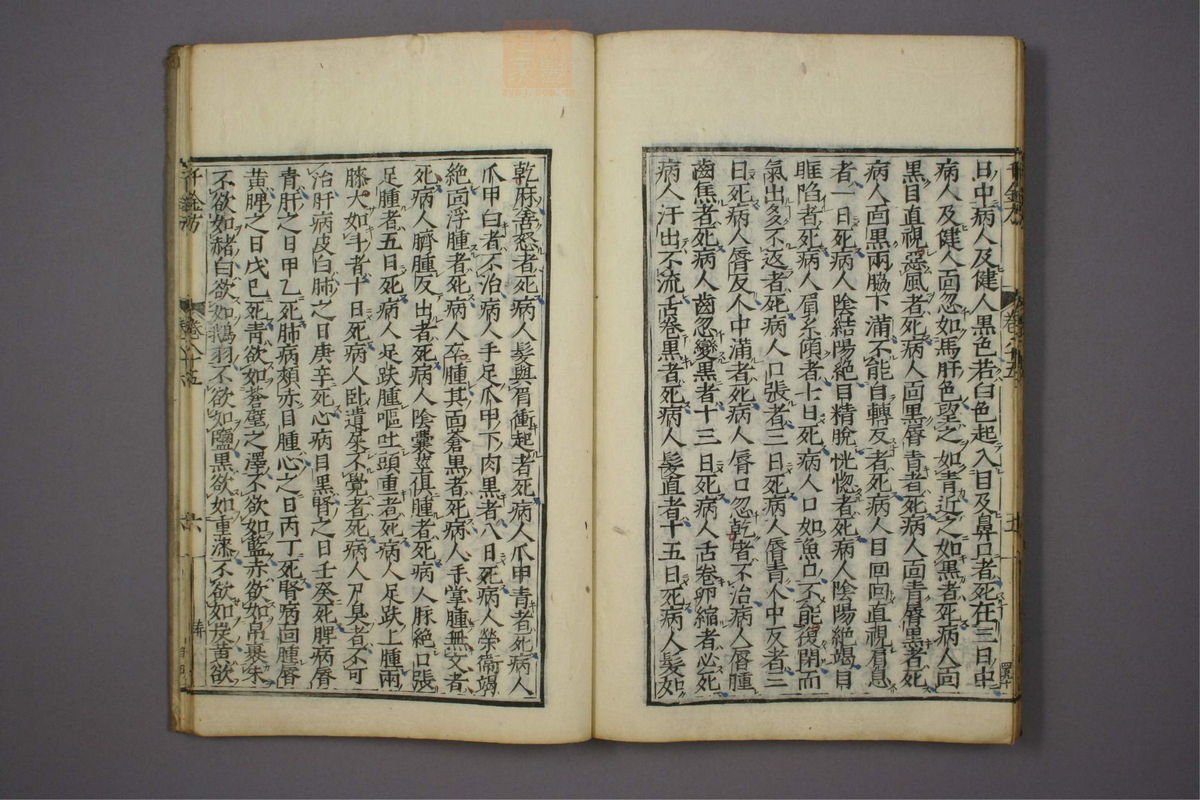 日中病人及健人黒色若白色起入目及鼻口者死在三日中
病人及健人面忽如馬肝色望之如青近之如黒者死病人面
黒目直視惡風者死病人面黒唇青者死病人面青唇黒者死
病人面黒兩脇下滿不能自轉反者死病人目回回直視肩息
者一日死病人陰結陽絶目精脫恍惚者死病人陰陽絶竭目
眶陷者死病人眉系傾者七日死病人口如魚口不能復閉而
氣出多不返者死病人口張者三日死病人唇青人中反者三
日死病人唇反人中滿者死病人唇口忽乾者不治病人唇腫
齒焦者死病人齒忽變黒者十三日死病人舌卷卵縮者必死
病人汗出不流舌卷黒者死病人髮直者十五日死病人髮如
乾麻善怒者死病人髮與眉衝起者死病人爪甲青者死病人
爪甲白者不治病人手足爪甲下肉黒者八日死病人榮衞竭
絶面浮腫者死病人卒腫其面蒼黒者死病人手掌腫無文者
死病人臍腫反出者死病人陰囊莖俱腫者死病人脉絶口張
足腫者五日死病人足趺腫嘔吐頭重者死病人足趺上腫兩
膝大如斗者十日死病人臥遺屎不覺者死病人尸臭者不可
治肝病皮白肺之日庚辛死心病目黒腎之日壬癸死脾病唇
青肝之日甲乙死肺病頰赤目腫心之日丙丁死腎病面腫唇
黄脾之日戊己死青欲如蒼璧之澤不欲如藍赤欲如帛裹朱
不欲如赭白欲如鵝羽不欲如鹽黒欲如重漆不欲如炭黄欲
千金方